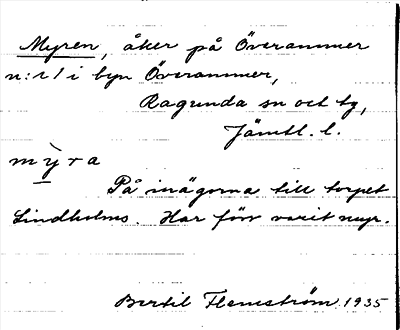 Myren, åker på Överammer
n:r 1 i byn Överammer,
Ragunda sn och tg,
Jämtl. l.
mỳra
På inägorna till torpet
Lindholms. Har förr varit myr.
Bertil Flemström 1935